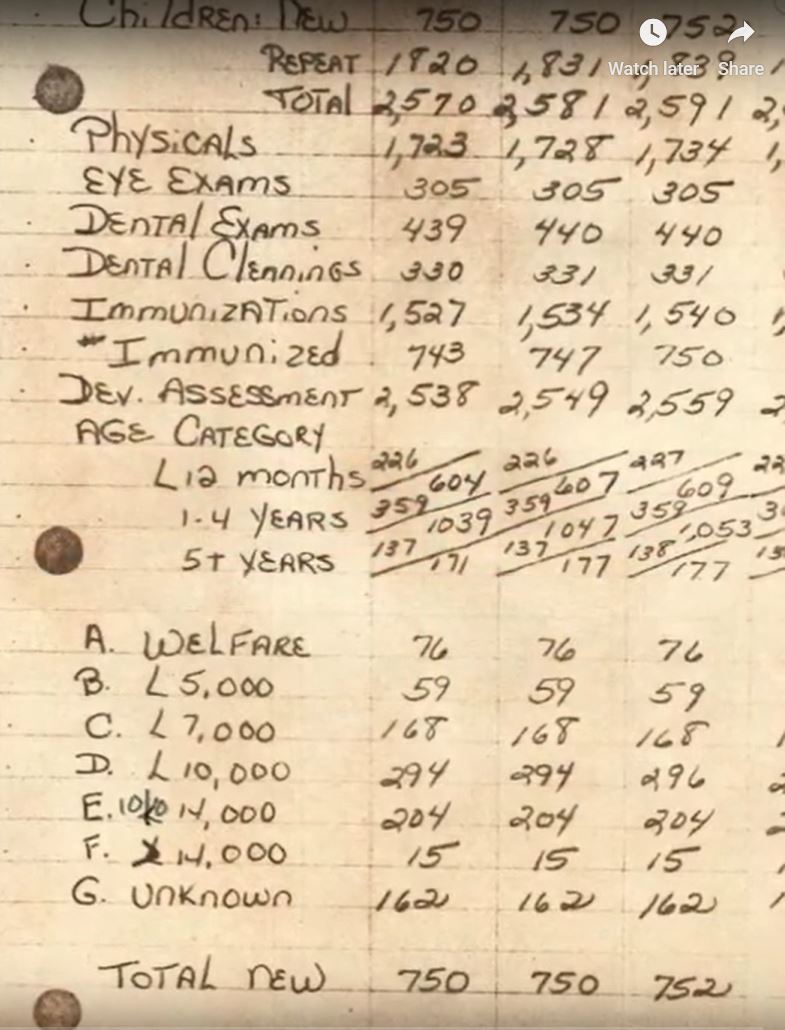 Children: New 750 750 752
Watch later Share
Repeat 1820 1,831 1,839
Total 2,570 2,581 2,591 2,
Physicals 1,723 1,728 1,734 1,
Eye Exams 305 305 305
Dental Exams 439 440 440
Dental Clennings 330 331 331
Immunizations 1,527 1,534 1,540 1,
# Immunized 743 747 750
Dev. Assessment 2,538 2,549 2,559 2
Age Category
L12 months 226/604 226/607 227/609 22
1-4 years 359/1039 359/1047 359/1,053 3
5+ years 137/171 137/177 138/177 13
A. Welfare 76 76 76
B. L 5,000 59 59 59
C. L 7,000 168 168 168 1
D. L 10,000 294 294 296 2
E. 14,000 204 204 204 2
F. 14,000 15 15 15 1
G. Unknown 162 162 162 1
Total new 750 750 752